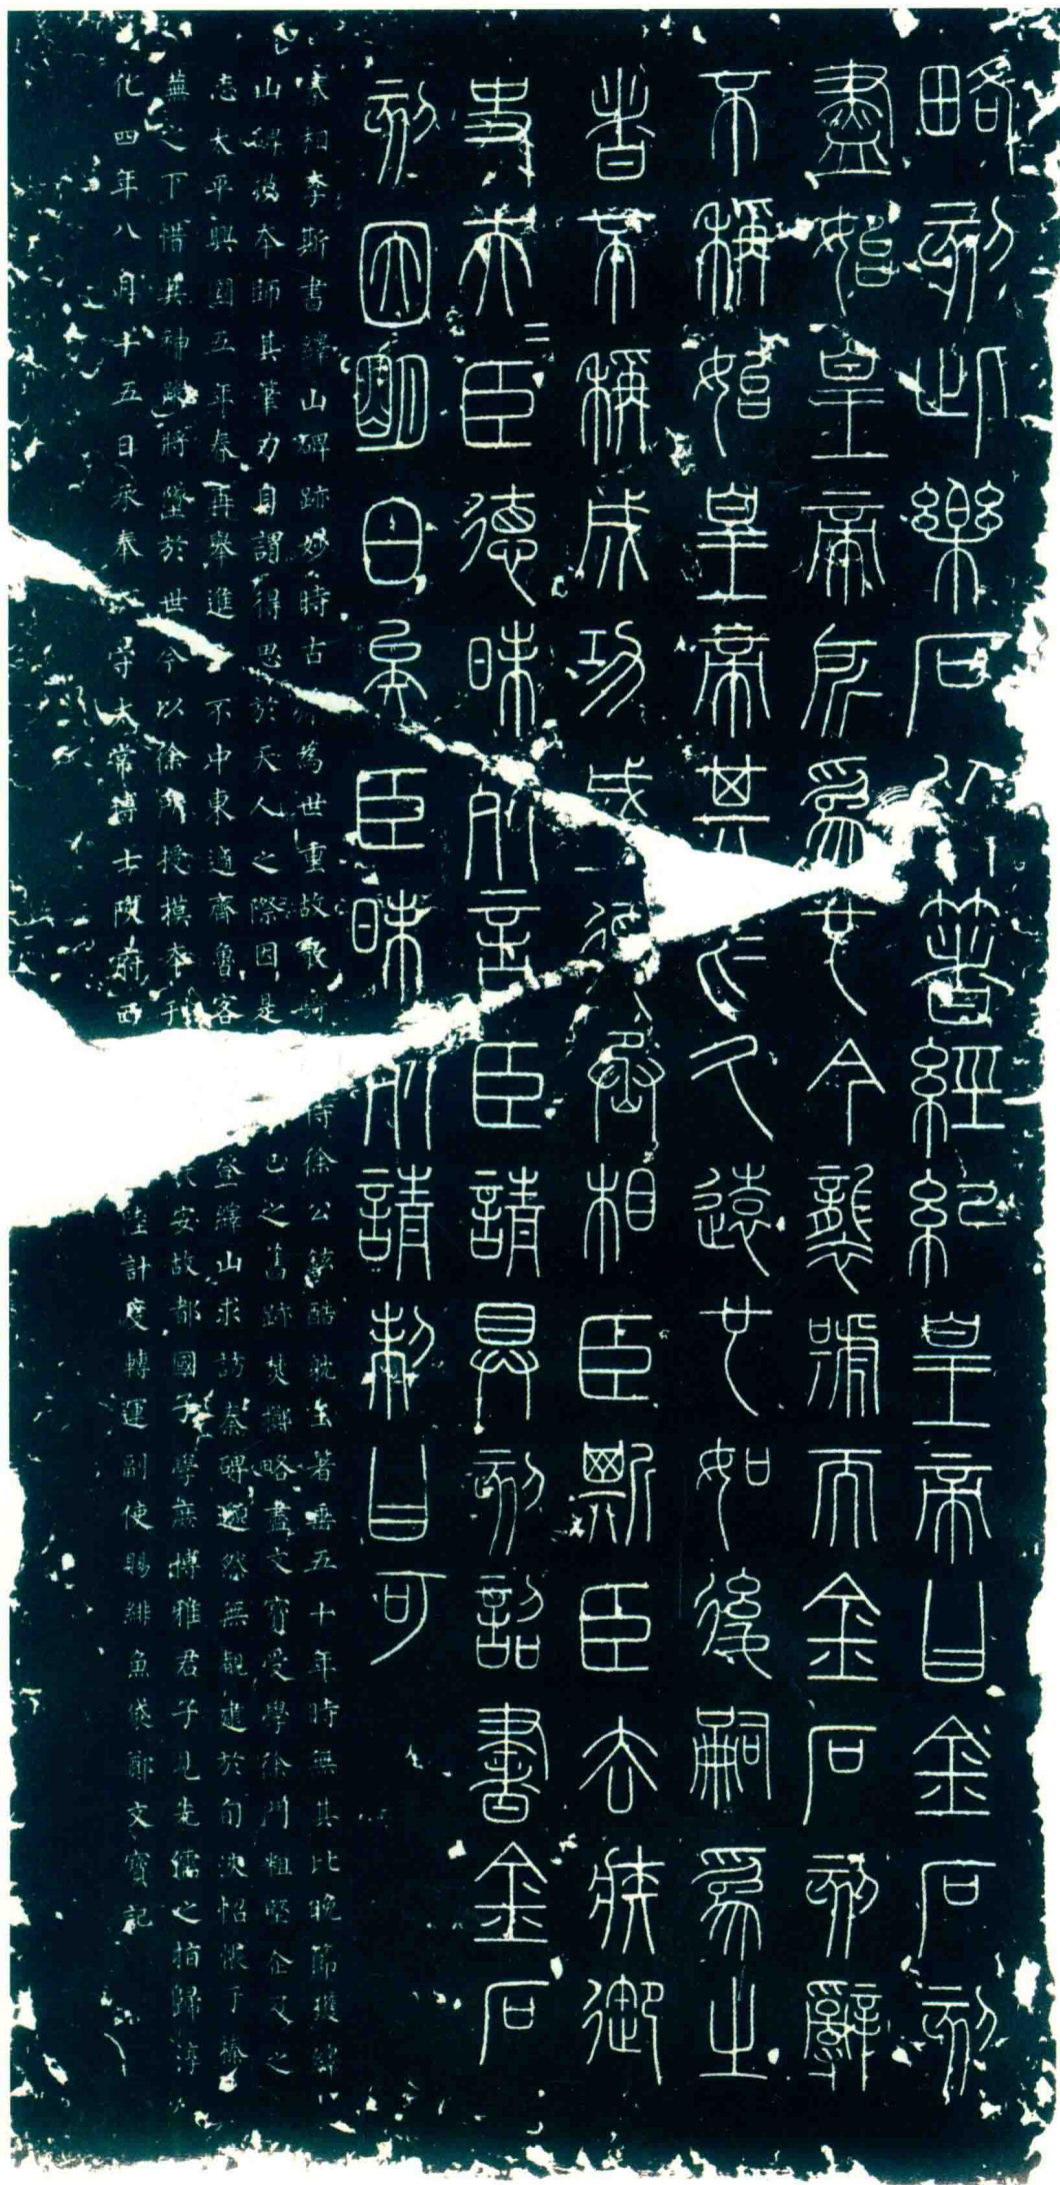 略刻此樂石以著經紀皇帝曰金石刻
盡始皇帝所為也今襲號而金石刻辭
不稱始皇帝其於久遠也如後嗣為之
者不稱成功盛德丞相臣斯臣去疾御
史夫二臣德昧死言臣請具刻詔書金石
刻因明白矣臣昧死請制曰可
秦相李斯書繹山碑跡妙時古殊為世重故散騎侍徐公鉉酷耽玉著垂五十年時無其比晚節獲繹
山碑摸本師其筆力自謂得思於天人之際因是己之舊跡焚擲略盡文寶受學徐門粗堅企及之
志太平興國五年春再舉進不中東適齊魯客登繹山求訪秦碑邈然無覩逮於旬浹怊悵于榛
蕪之下惜其神蹤將墜於世今以徐所授摸本刊安故都國子學庶博雅君子見先儒之指歸淳
化四年八月十五日承奉守太常博士陝府西陸計度轉運副使賜緋魚袋鄭文寶記